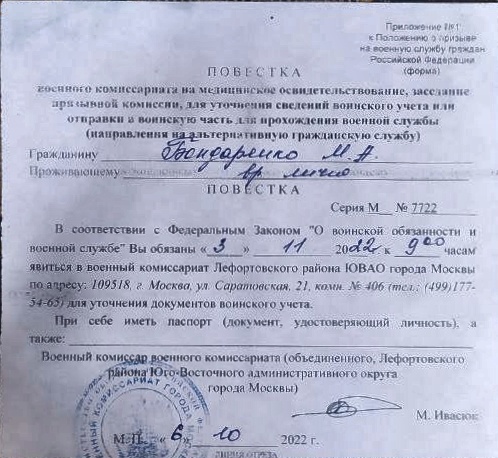 Приложение №1
к Положению о призыве
на военную службу граждан
Российской Федерации
(форма)
ПОВЕСТКА
военного комиссариата на медицинское освидетельствование, заседание
призывной комиссии, для уточнения сведений воинского учета или
отправки в воинскую часть для прохождения военной службы
(направления на альтернативную гражданскую службу)
Гражданину Бондаренко М.А.
Проживающему вр лично
ПОВЕСТКА
Серия М № 7722
В соответствии с Федеральным Законом "О воинской обязанности и
военной службе" Вы обязаны «3» 11 2022г. к 9 00 часам
явиться в военный комиссариат Лефортовского района ЮВАО города Москвы
по адресу: 109518, г. Москва, ул. Саратовская, 21, комн. № 406 (тел.: (499)177-
54-65) для уточнения документов воинского учета.
При себе иметь паспорт (документ, удостоверяющий личность), а
также:
Военный комиссар военного комиссариата (объединенного, Лефортовского
района Юго-Восточного административного округа
города Москвы)
М. Ивасюк
М.П. «6» 10 2022 г.
ЛИНИЯ ОТРЕЗА
ВОЕННЫЙ КОМИССАРИАТ ГОРОДА